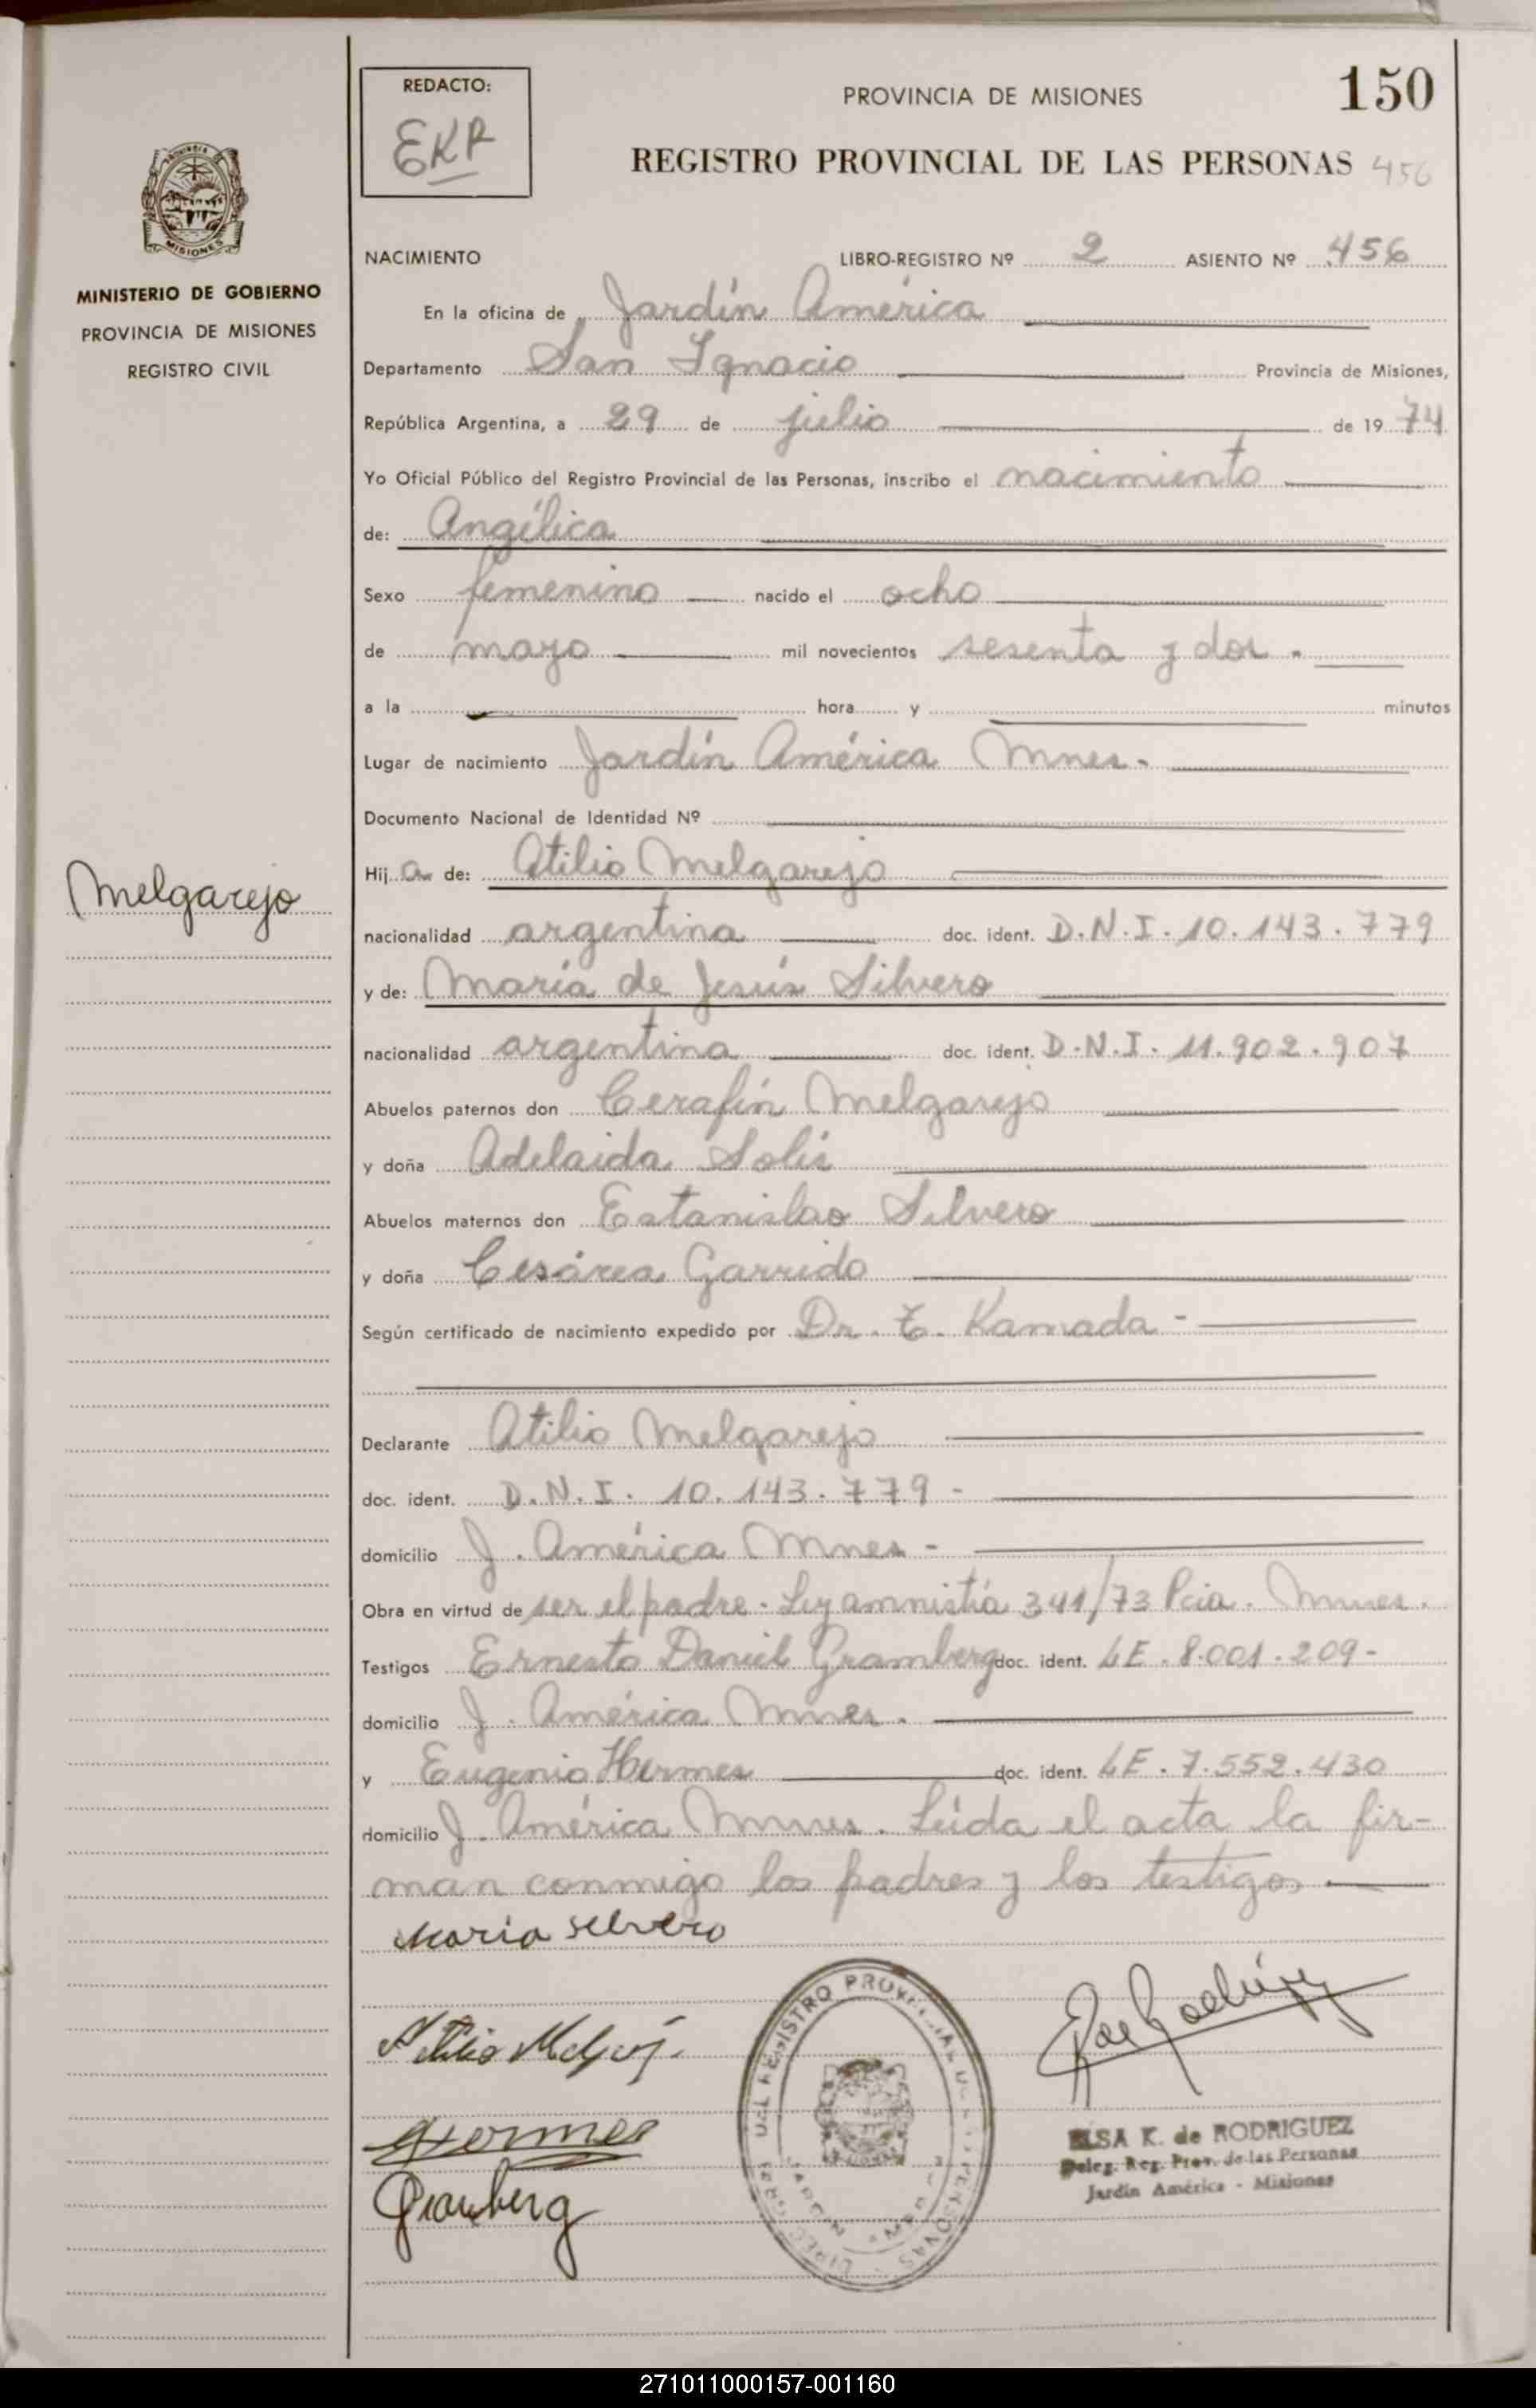 REDACTO:
EKR
PROVINCIA DE MISIONES
150
REGISTRO PROVINCIAL DE LAS PERSONAS 456
MISIONES
MINISTERIO DE GOBIERNO
PROVINCIA DE MISIONES
REGISTRO CIVIL
NACIMIENTO LIBRO-REGISTRO Nº 2 ASIENTO Nº 456
En la oficina de Jardín América
Departamento San Ignacio Provincia de Misiones,
República Argentina, a 29 de julio de 1974
Yo Oficial Público del Registro Provincial de las Personas, inscribo el nacimiento
de: Angélica
Sexo femenino nacido el ocho
de mayo mil novecientos sesenta y dos.
a la hora y minutos
Lugar de nacimiento Jardín América Mnes.
Documento Nacional de Identidad Nº
Melgarejo
Hija de: Atilio Melgarejo
nacionalidad argentina doc. ident. D.N.I. 10.143.779
y de: María de Jesús Silvero
nacionalidad argentina doc. ident. D.N.I. 11.902.907
Abuelos paternos don Cerafín Melgarejo
y doña Adelaida Solis
Abuelos maternos don Estanislao Silvero
y doña Cesárea Garrido
Según certificado de nacimiento expedido por Dr. T. Kamada -
Declarante Atilio Melgarejo
doc. ident. D.N.I. 10.143.779 -
domicilio J. América Mnes -
Obra en virtud de ser el padre. Ley amnistía 341/73 Pcia. Mnes.
Testigos Ernesto Daniel Gramberg doc. ident. LE. 8.001.209-
domicilio J. América Mnes.
y Eugenio Hermes doc. ident. LE. 7.552.430
domicilio J. América Mnes. Leída el acta la fir-
man conmigo los padres y los testigos
Maria Silvero
Atilio Melgarejo
Hermes
Gramberg
ELSA K. de RODRIGUEZ
Deleg. Reg. Prov. de las Personas
Jardín América - Misiones
271011000157-001160